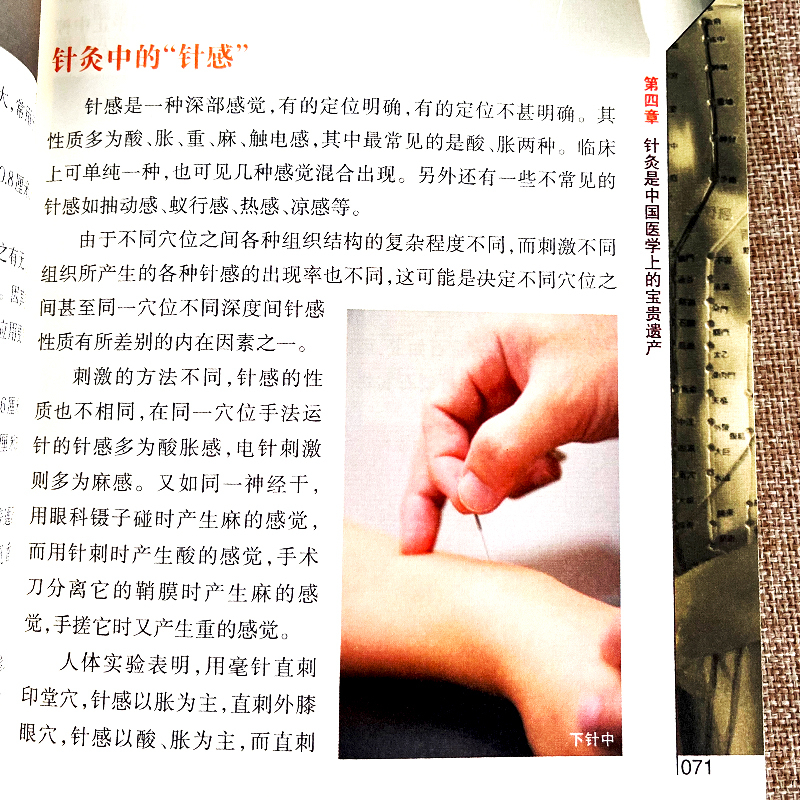 针灸中的“针感”
针感是一种深部感觉，有的定位明确，有的定位不甚明确。其
性质多为酸、胀、重、麻、触电感，其中最常见的是酸、胀两种。临床
上可单纯一种，也可见几种感觉混合出现。另外还有一些不常见的
针感如抽动感、蚁行感、热感、凉感等。
由于不同穴位之间各种组织结构的复杂程度不同，而刺激不同
组织所产生的各种针感的出现率也不同，这可能是决定不同穴位之
间甚至同一穴位不同深度间针感
性质有所差别的内在因素之一。
刺激的方法不同，针感的性
质也不相同，在同一穴位手法运
针的针感多为酸胀感，电针刺激
则多为麻感。又如同一神经干，
用眼科镊子碰时产生麻的感觉，
而用针刺时产生酸的感觉，手术
刀分离它的鞘膜时产生麻的感
觉，手搓它时又产生重的感觉。
人体实验表明，用毫针直刺
印堂穴，针感以胀为主，直刺外膝
眼穴，针感以酸、胀为主，而直刺
下针中
第四章 针灸是中国医学上的宝贵遗产
071